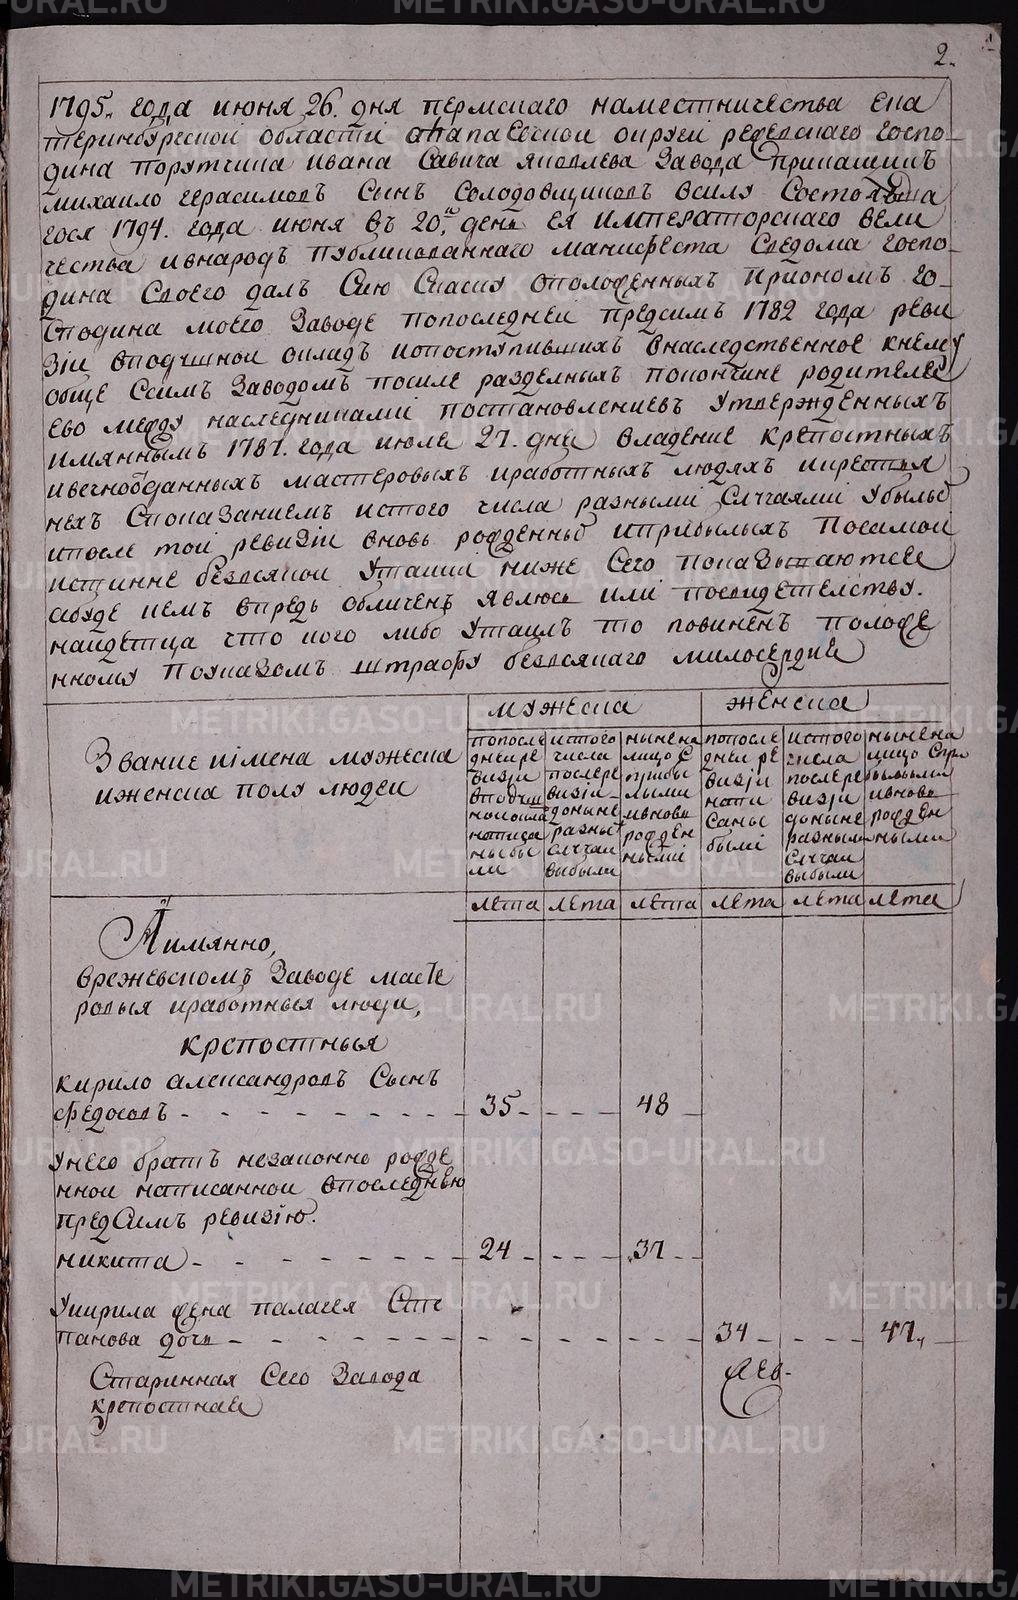 2.
1795. года июня 26. дня пермскаго наместничества ека
теринбургской области алапаевской округи режевскаго госпо-
дина порутчика ивана Савича яковлева Завода прикащикъ
михаило герасимовъ Сынъ Солодовщиковъ Всилу Состоявша
гося 1794. года июня въ 20.й день ея императорскаго вели
чества ивнародъ публикованнаго манифеста Сведома госпо-
дина Своего далъ Сию Скаску оположенныхъ приономъ го-
Сподина моего Заводе попоследней предсимъ 1782 года реви
зіи вподушной окладъ ипоступившихъ внаследственное кнему
обще Ссимъ Заводомъ посиле разделныхъ покончине родителей
ево между наследниками постановлениевъ утвержденныхъ
имяннымъ 1787. года июле 27. дня владение крепостныхъ
ивечноотданныхъ мастеровыхъ иработныхъ людяхъ икрестья
нехъ Споказаниемъ истого числа разными Случаями убылыхъ
ипосле той ревизіи вновь рожденныхъ иприбылыхъ Посамой
истинне безвсякой утайки ниже Сего показываютсе
абуде кемъ впредь обличенъ явлюсь или посвидетелству.
найдетца что кого либо утаилъ то повиненъ положе
нному поуказомъ штрафу безвсякаго милосердия
Звание иімена мужеска
иженска полу людей
мужеска
женска
попосле
дней ре
визіи
вподуш
ной окла
написа
ны бы
ли
истого
числа
послере
визіи
доныне
разны
Случаи
выбыли
ныне на
лицо С
прибы
лыми
ивновь
рожден
ными
попосле
дней ре
визіи
напи
Саны
были
истого
числа
послере
визіи
доныне
разным
Случаи
выбыли
ныне на
лицо Спри
былыми
ивновь
рожден
ными
лета лета лета лета лета лета
Аимянно,
врежевскомъ Заводе масте
ровыя иработныя люди,
крепостныя
кирило александровъ Сынъ
федосовъ 35 48
Унего братъ незаконно рожде
нной написанной впоследнею
предСимъ ревизию.
никита 24 37
Укирила жена палагея Сте
панова дочь 34 47
Старинная Сего Завода
крепостная